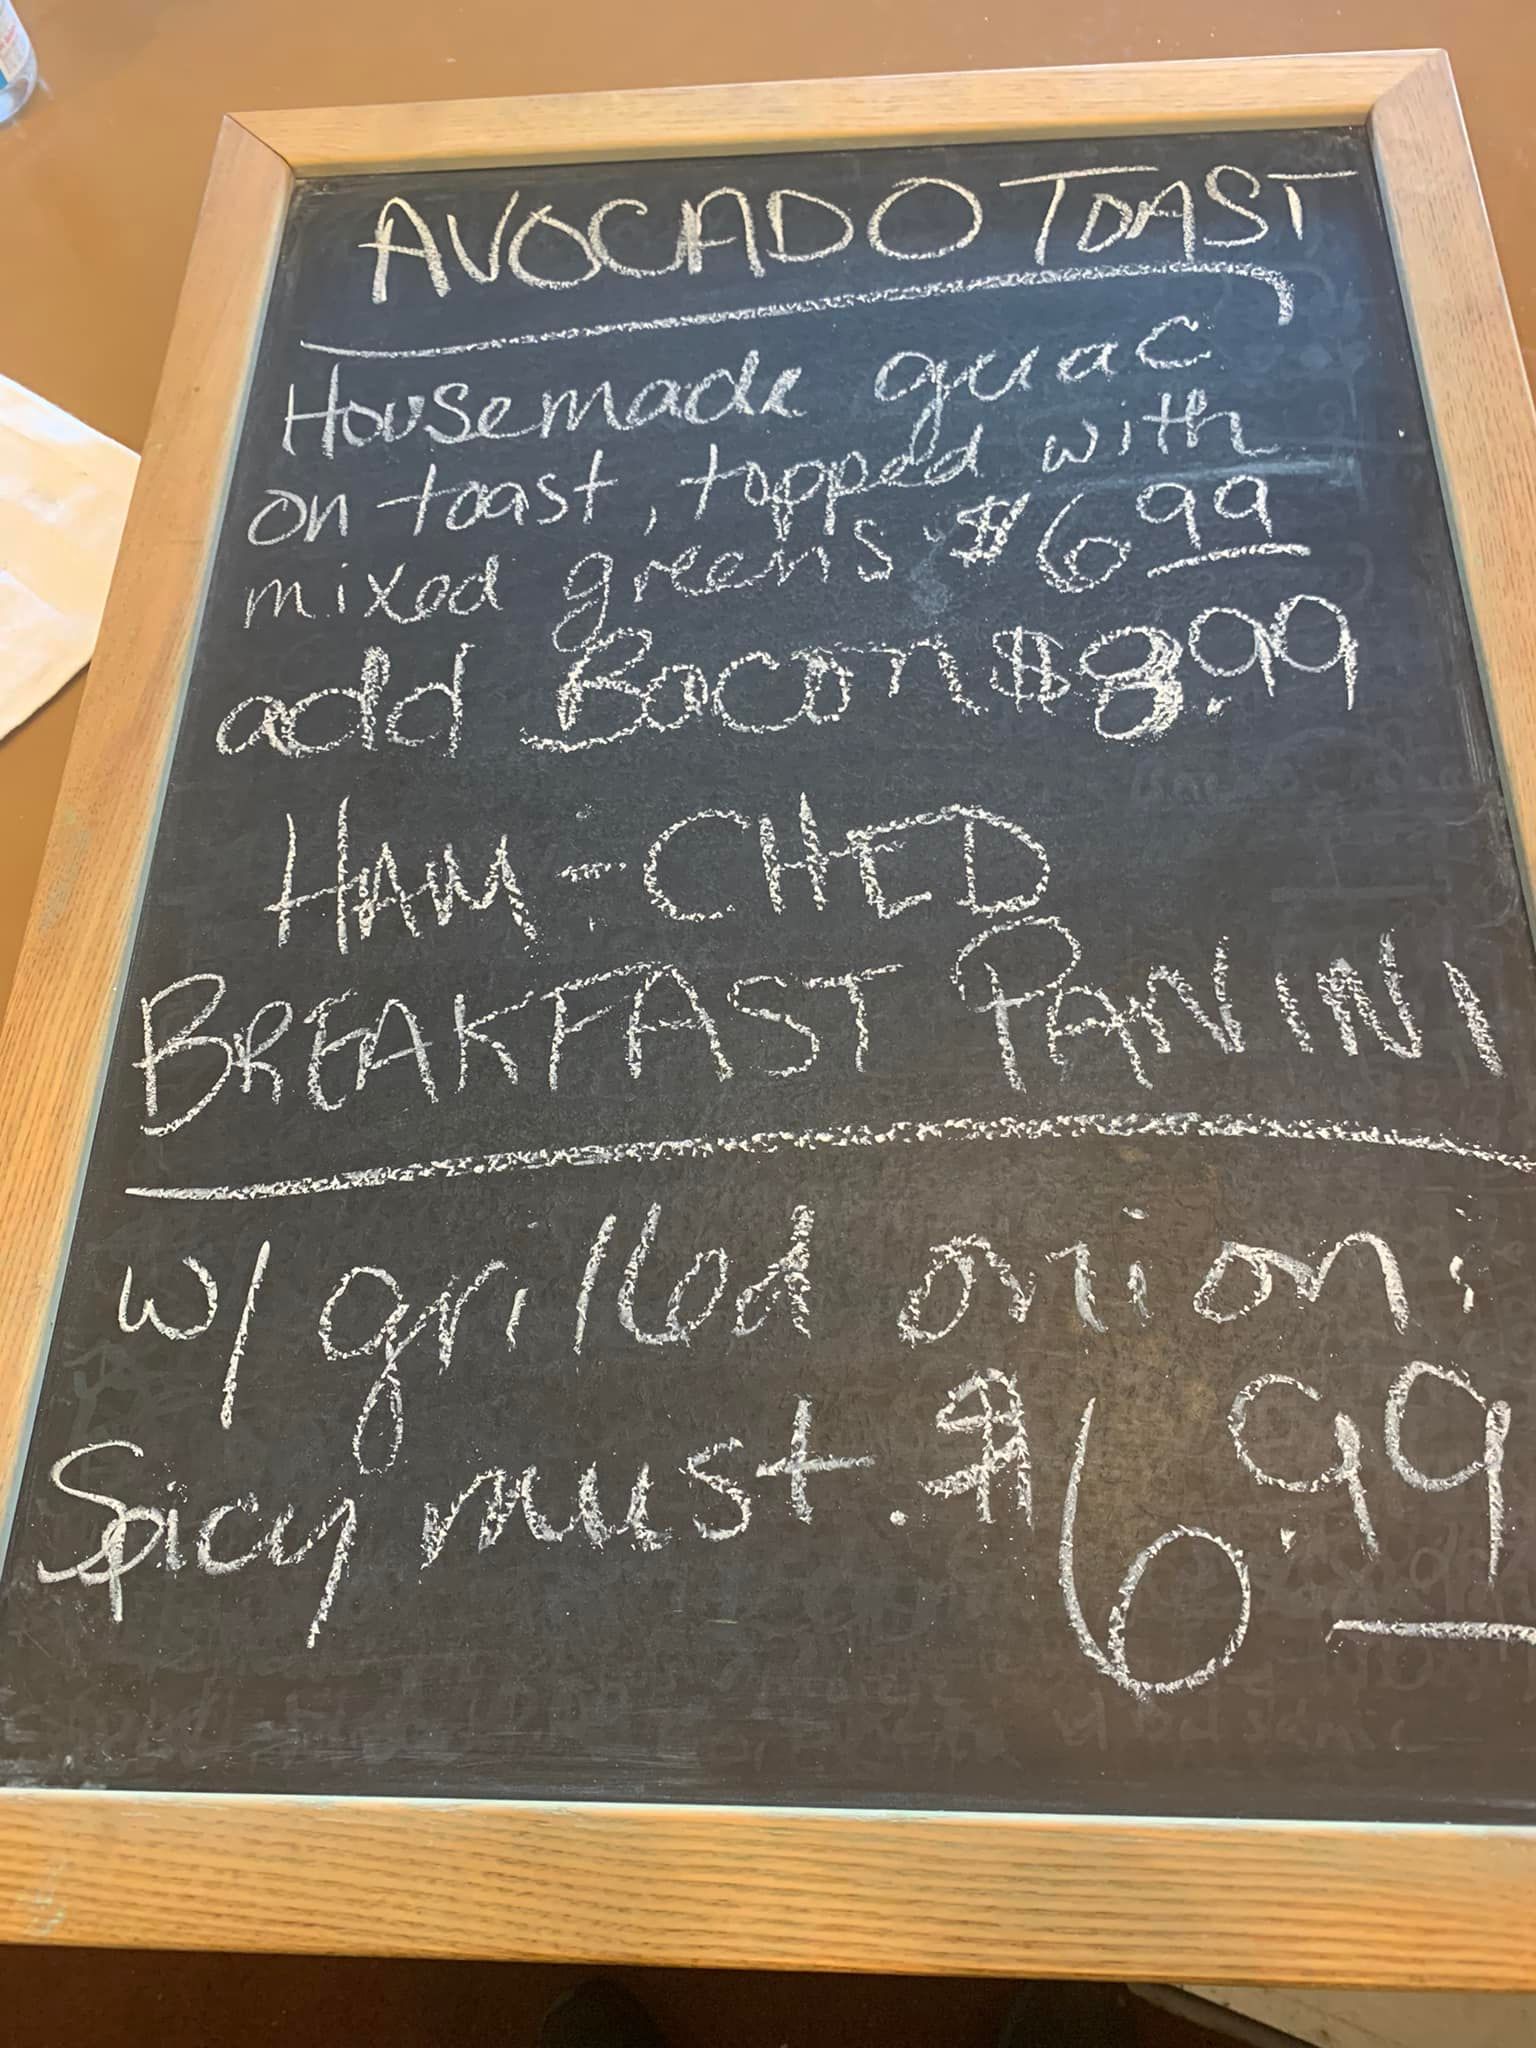 AVOCADO TOAST
Housemade guac
on toast, topped with
mixed greens $6.99
add Bacon $8.99
HAM - CHED
BREAKFAST PANINI
w/ grilled onion
Spicy must. $6.99
w/ balsamic